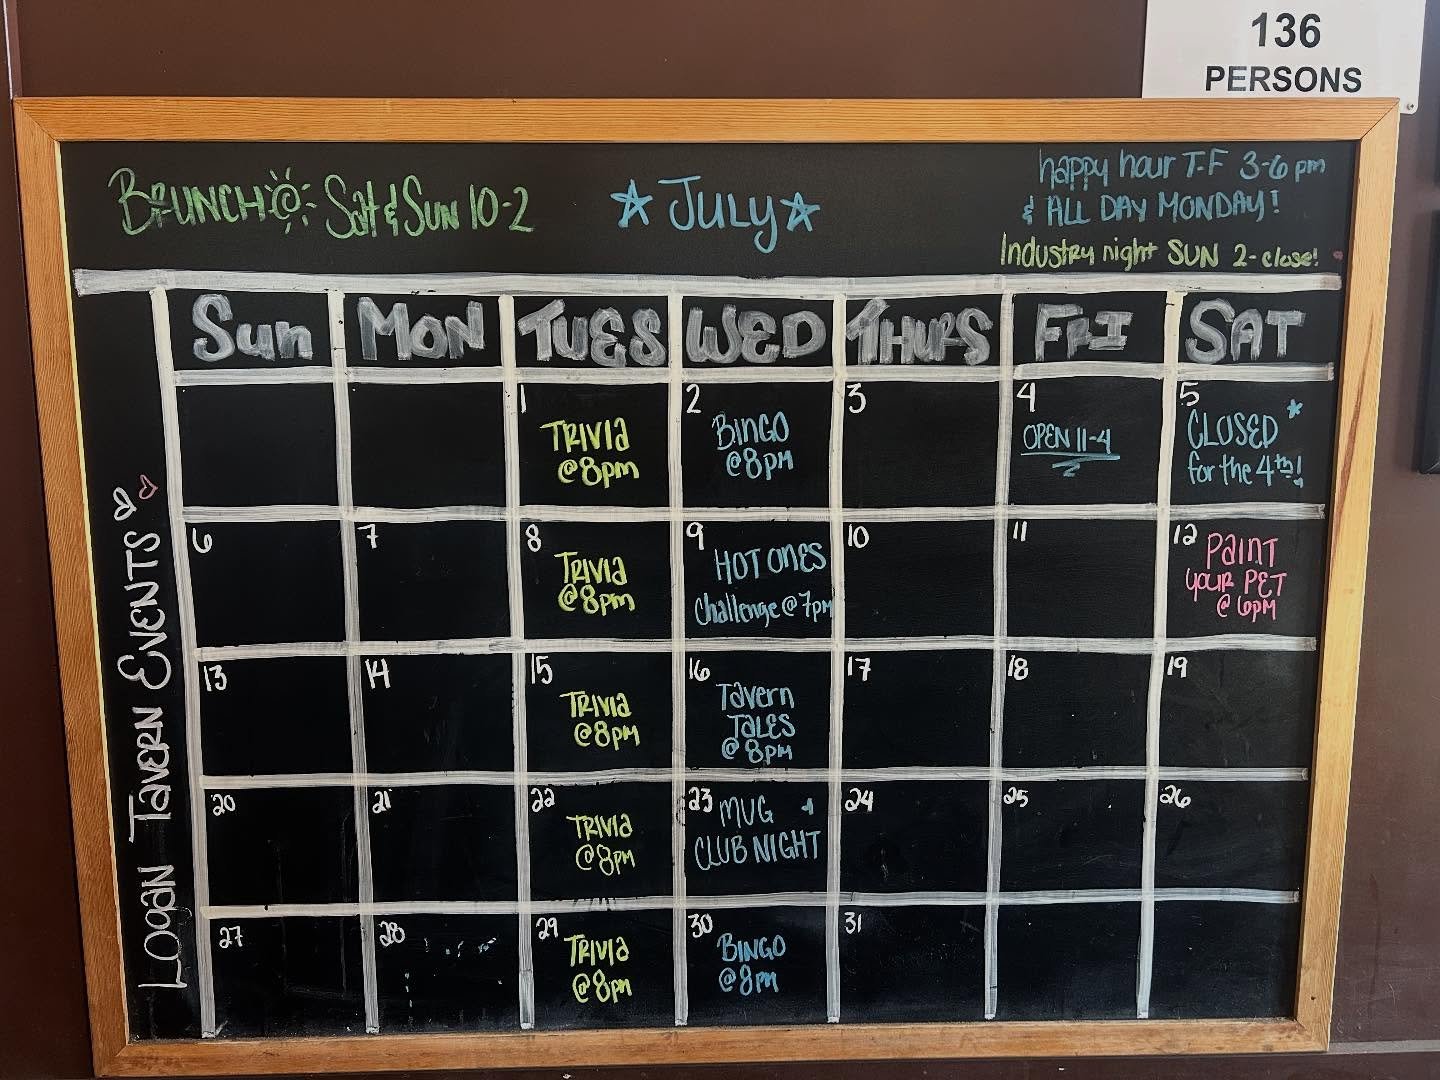 136
PERSONS
BRUNCH Sat & Sun 10-2
July
happy hour T-F 3-6 pm
& ALL DAY MONDAY!
Industry night SUN 2-close!
LOGAN TAVERN EVENTS
Sun MON TUES WED THURS FRI SAT
1 TRIVIA @8pm
2 BINGO @8PM
3
4 OPEN 11-4
5 CLOSED for the 4th!
6
7
8 TRIVIA @8pm
9 HOT ONES Challenge @ 7pm
10
11
12 PAINT YOUR PET @ 6PM
13
14
15 TRIVIA @8PM
16 Tavern TALES @ 8PM
17
18
19
20
21
22 TRIVIA @8PM
23 MUG CLUB NIGHT
24
25
26
27
28
29 TRIVIA @8pm
30 BINGO @8PM
31